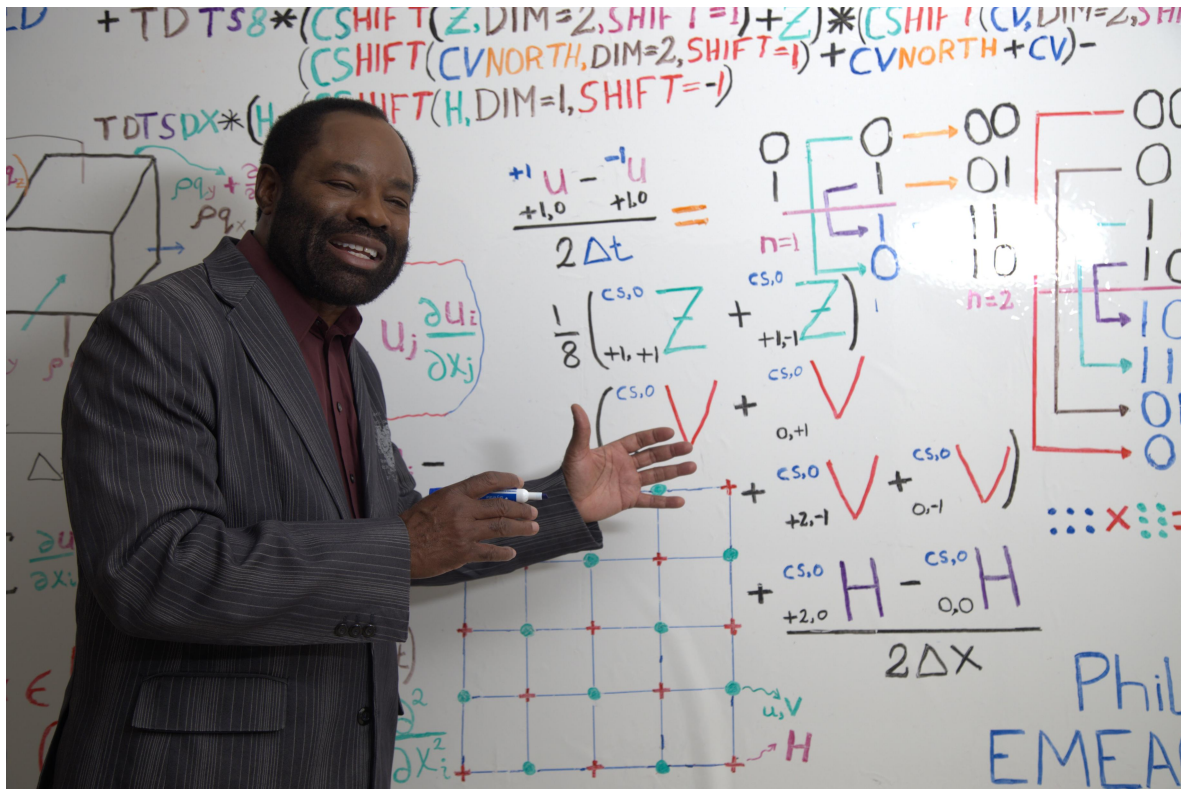 + TD TS8*(CSHIFT(Z,DIM=2,SHIFT=1)+Z)*(CSHIFT(CV,DIM=2,SHI
(CSHIFT(CVNORTH,DIM=2,SHIFT=1)+CVNORTH+CV)-
TDTSDX*(H-(CSHIFT(H,DIM=1,SHIFT=-1)
ρq_y +
ρq_x
+1 u +1,0 - -1 u +1,0
2Δt
=
u_j ∂u_i
∂x_j
1/8 (cs,0 Z +1,+1 + cs,0 Z +1,-1)
(cs,0 V + cs,0 V 0,+1
+ cs,0 V +2,-1 + cs,0 V 0,-1)
+ cs,0 H +2,0 - cs,0 H 0,0
2ΔX
0 0 → 00
1 1 → 01
1 11
0 10
n=1
n=2
00
0
1
10
10
11
0
0
u,V
H
∂u
∂x_i
ϵ
∂²
∂x_i²
Phil
EMEA